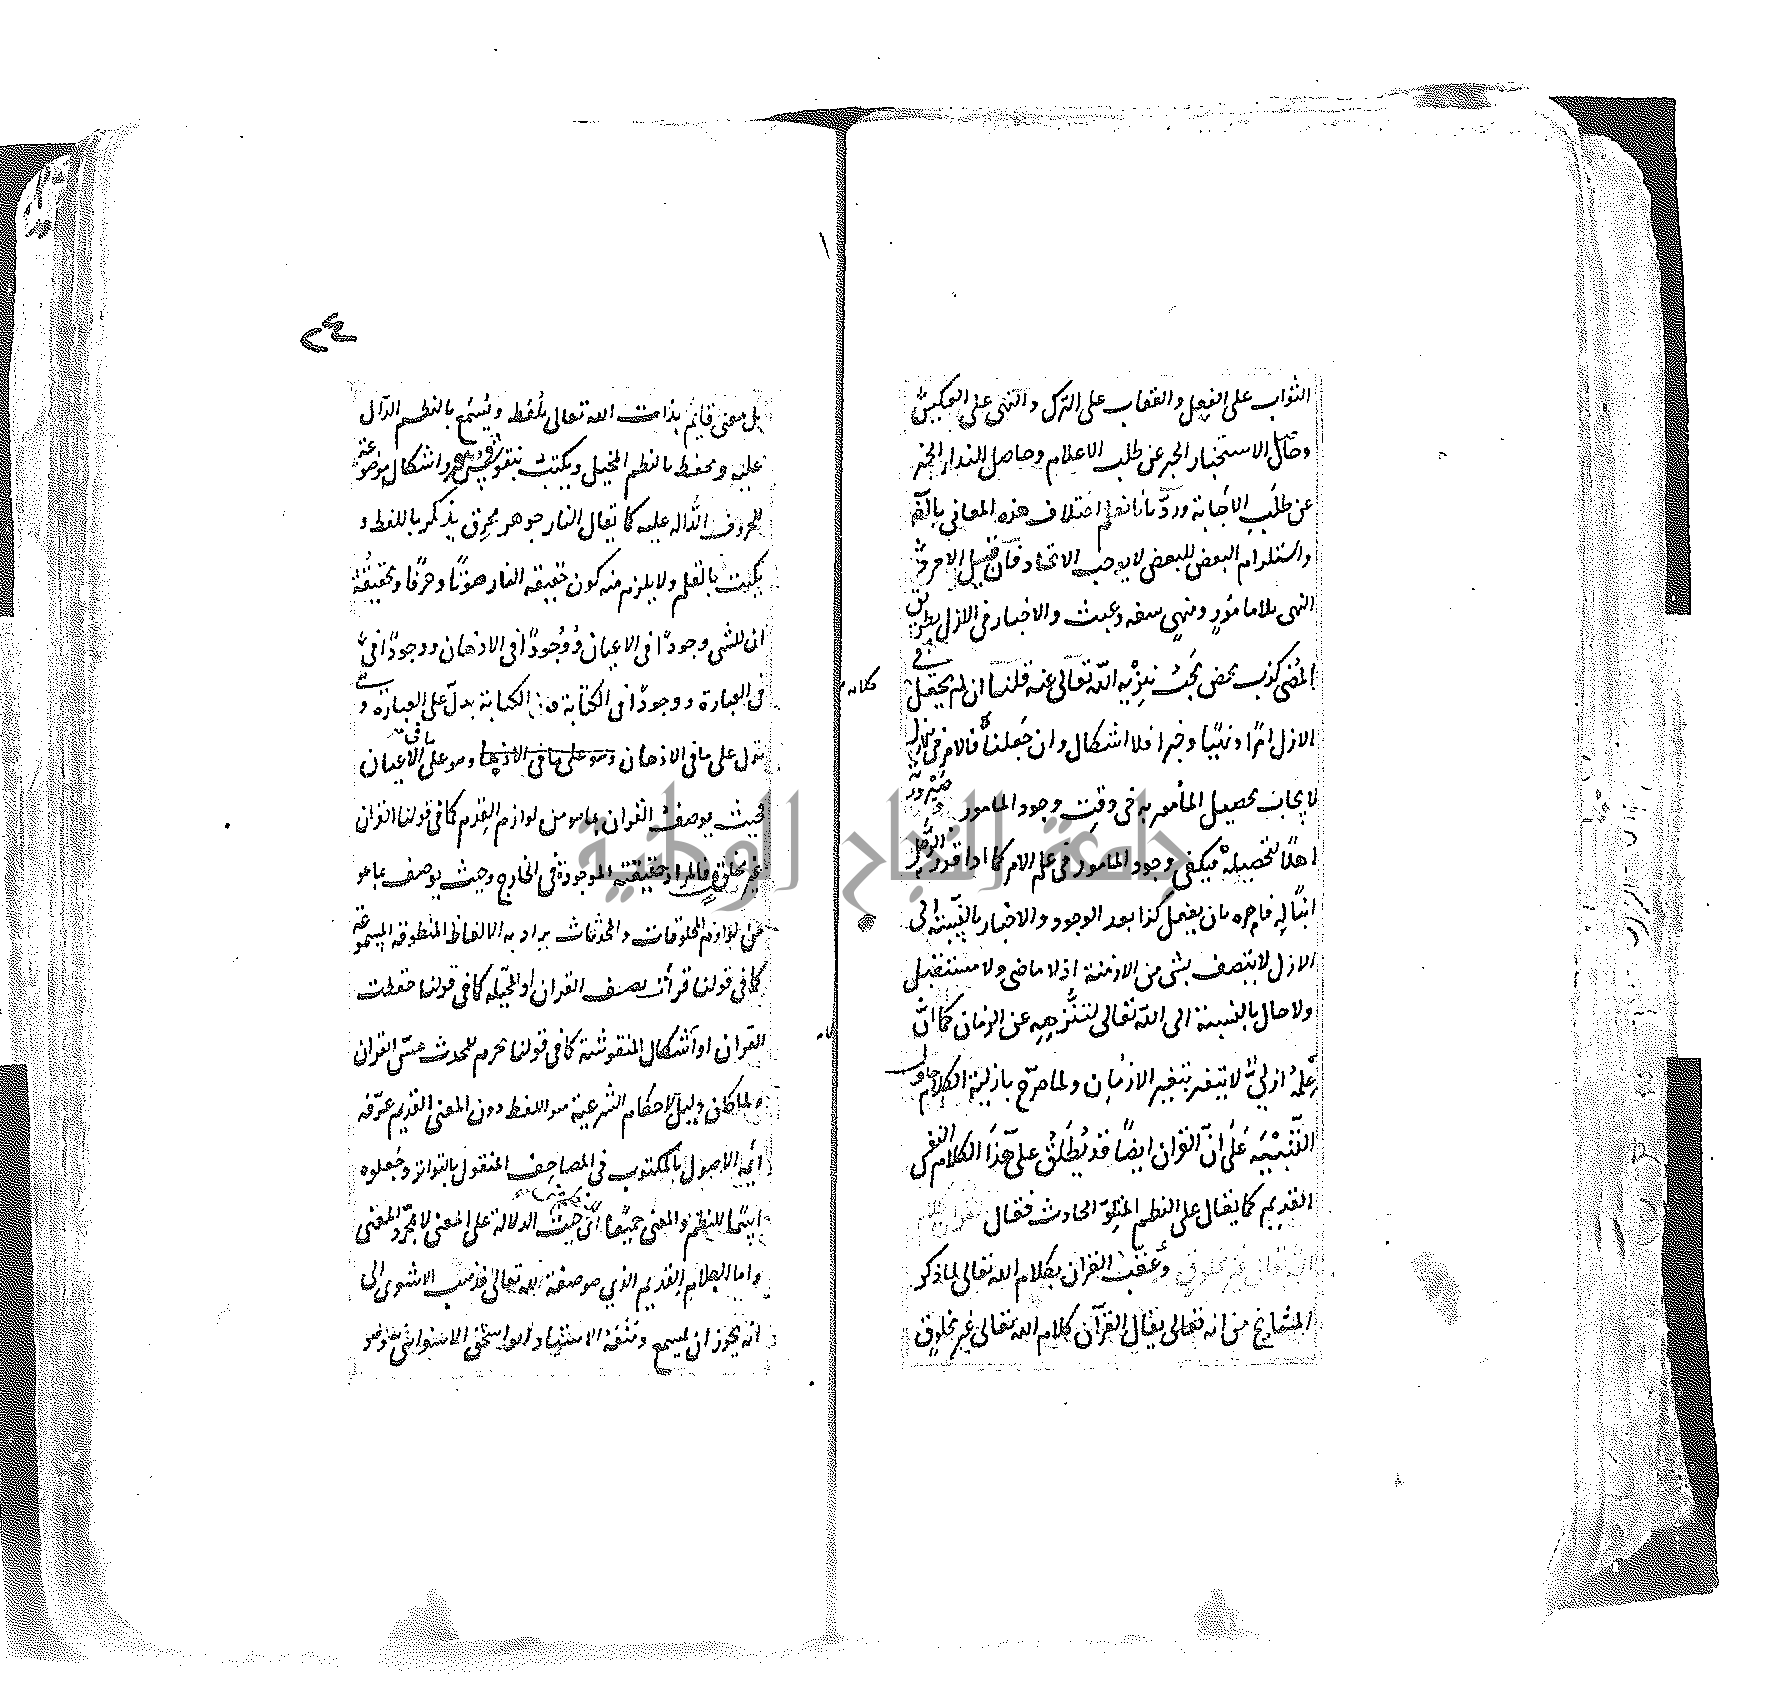 الثواب على الفعل والعقاب على الترك والنهى على العكس
وحاصل الاستخبار الخبر عن طلب الاعلام وحاصل الندا الخبر
عن طلب الاجابة ورد بانا نعلم اختلاف هذه المعانى بالضرورة
واستلزام البعض للبعض لا يوجب الاتحاد فان قيل الامر و
النهى بلا مامور ومنهى سفه وعبث والاخبار فى الازل بطريق
المضى كذب محض يجب تنزيه الله تعالى عنه قلنا ان لم يجعل فى
الازل امرا ونهيا وخبرا فلا اشكال وان جعلناه فالامر فى الازل
لايجاب تحصيل المأمور به فى وقت وجود المامور وصيرورته
اهلا لتحصيله فيكفى وجود المامور فى علم الامر كما اذا قدر الرجل
ابنا له فامره بان يفعل كذا بعد الوجود والاخبار بالنسبة الى
الازل لا يتصف بشئ من الازمنة اذ لا ماضى ولا مستقبل
ولا حال بالنسبة الى الله تعالى لتنزهه عن الزمان كما ان
علمه ازلي لا يتغير بتغير الازمان ولما صرح بازلية الكلام حاول
التنبيه على ان القران ايضا قد يطلق على هذا الكلام النفسى
القديم كما يقال على النظم المتلو الحادث فقال
وعقب القران بكلام الله تعالى لما ذكر
المشايخ من انه تعالى يقال القرآن كلام الله تعالى غير مخلوق
كلامه
٢٤
بل معنى قايم بذات الله تعالى يلفظ ويسمع بالنظم الدال
عليه ويحفظ بالنظم المخيل ويكتب بنقوش واشكال موضوعة
للحروف الدالة عليه كما يقال النار جوهر محرق يذكر باللفظ و
يكتب بالقلم ولا يلزم منه كون حقيقة النار صوتا وحرفا وتحقيقه
ان للشى وجودا فى الاعيان ووجودا فى الاذهان ووجودا فى
فى العبارة ووجودا فى الكتابة الكتابة يدل على العبارة و
على ما فى الاذهان وهو على ما فى الاعيان
فحيث يوصف القران بما هو من لوازم القدم كما فى قولنا القران
غير مخلوق فالمراد حقيقته الموجودة فى الخارج وحيث يوصف بما هو
من لوازم المخلوقات والمحدثات يراد به الالفاظ المنطوقة المسموعة
كما فى قولنا قرأت نصف القران او المخيلة كما فى قولنا حفظت
القران او اشكال المنقوشة كما فى قولنا يحرم للمحدث مس القران
ولما كان دليل الاحكام الشرعية هو اللفظ دون المعنى القديم عرفه
ائمه الاصول بالمكتوب فى المصاحف المنقول بالتواتر وجعلوه
اسما للنظم والمعنى جميعا حيث الدلالة على المعنى لا مجرد المعنى
واما الكلام القديم الذي هو صفة لله تعالى فذهب الاشعرى الى
انه يجوز ان يسمع ومنعه الاستاد ابو اسحق الاسفرائنى وهو